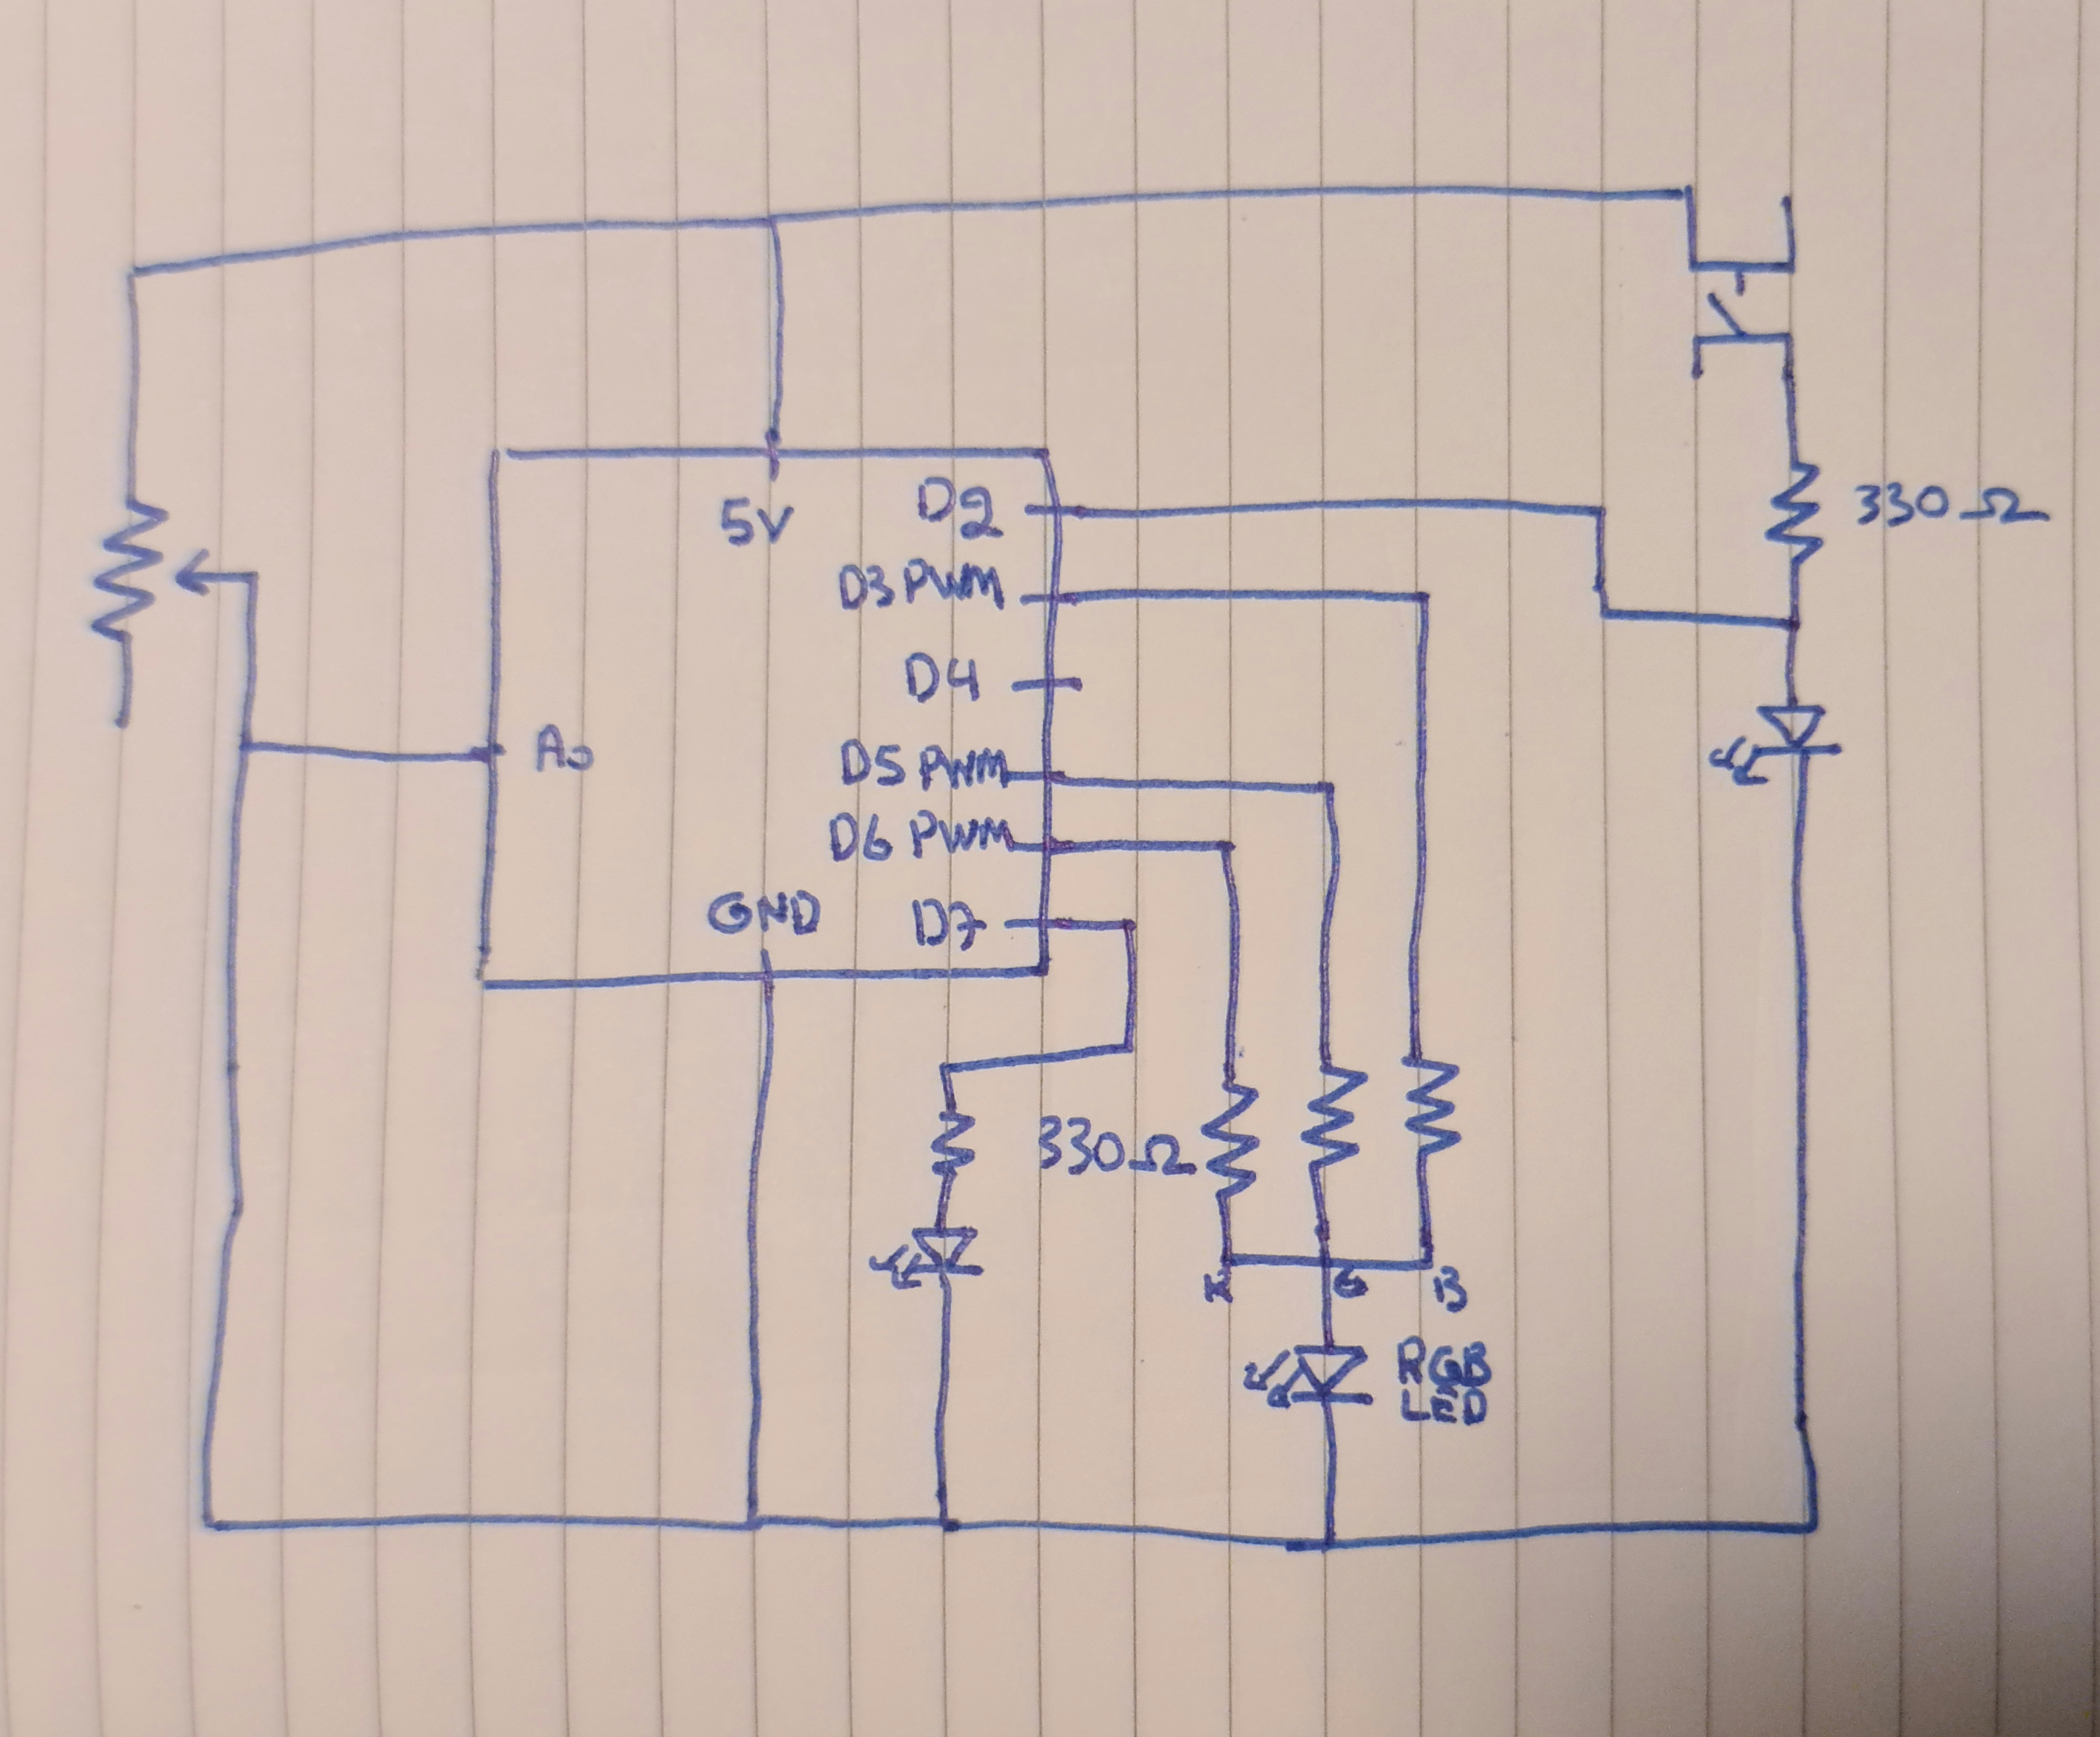 5V
D2
330Ω
D3 PWM
D4
A0
D5 PWM
D6 PWM
GND
D7
330Ω
R
G
B
RGB
LED